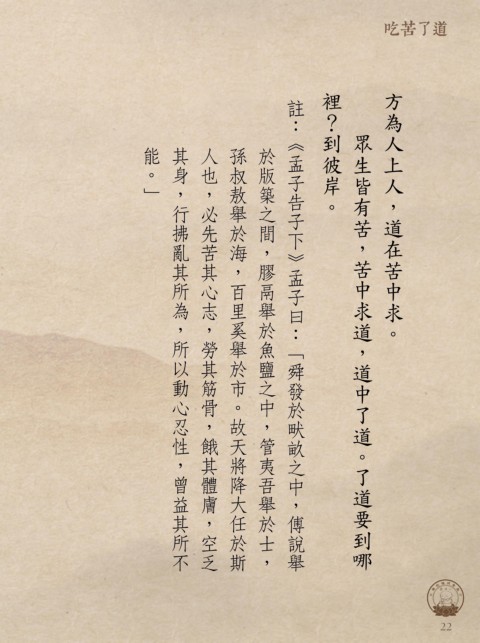 吃苦了道
方為人上人，道在苦中求。
眾生皆有苦，苦中求道，道中了道。了道要到哪
裡？到彼岸。
註：《孟子告子下》孟子曰：「舜發於畎畝之中，傅說舉
於版築之間，膠鬲舉於魚鹽之中，管夷吾舉於士，
孫叔敖舉於海，百里奚舉於市。故天將降大任於斯
人也，必先苦其心志，勞其筋骨，餓其體膚，空乏
其身，行拂亂其所為，所以動心忍性，曾益其所不
能。」
22